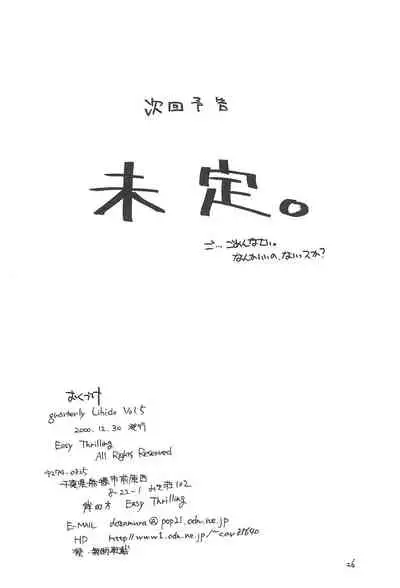 次回予告
未定。
ご…ごめんなさい。
なんかいいの、ないスか?
おくづけ
quarterly Libido Vol.5
2000.12.30 発行
Easy Thrilling
All Rights Reserved
〒274-0825
千葉県船橋市前原西
2-22-1 102
方 Easy Thrilling
E-MAIL @pop21.odn.ne.jp
HP http://www1.odn.ne.jp/~car31640
禁・無断転載
26